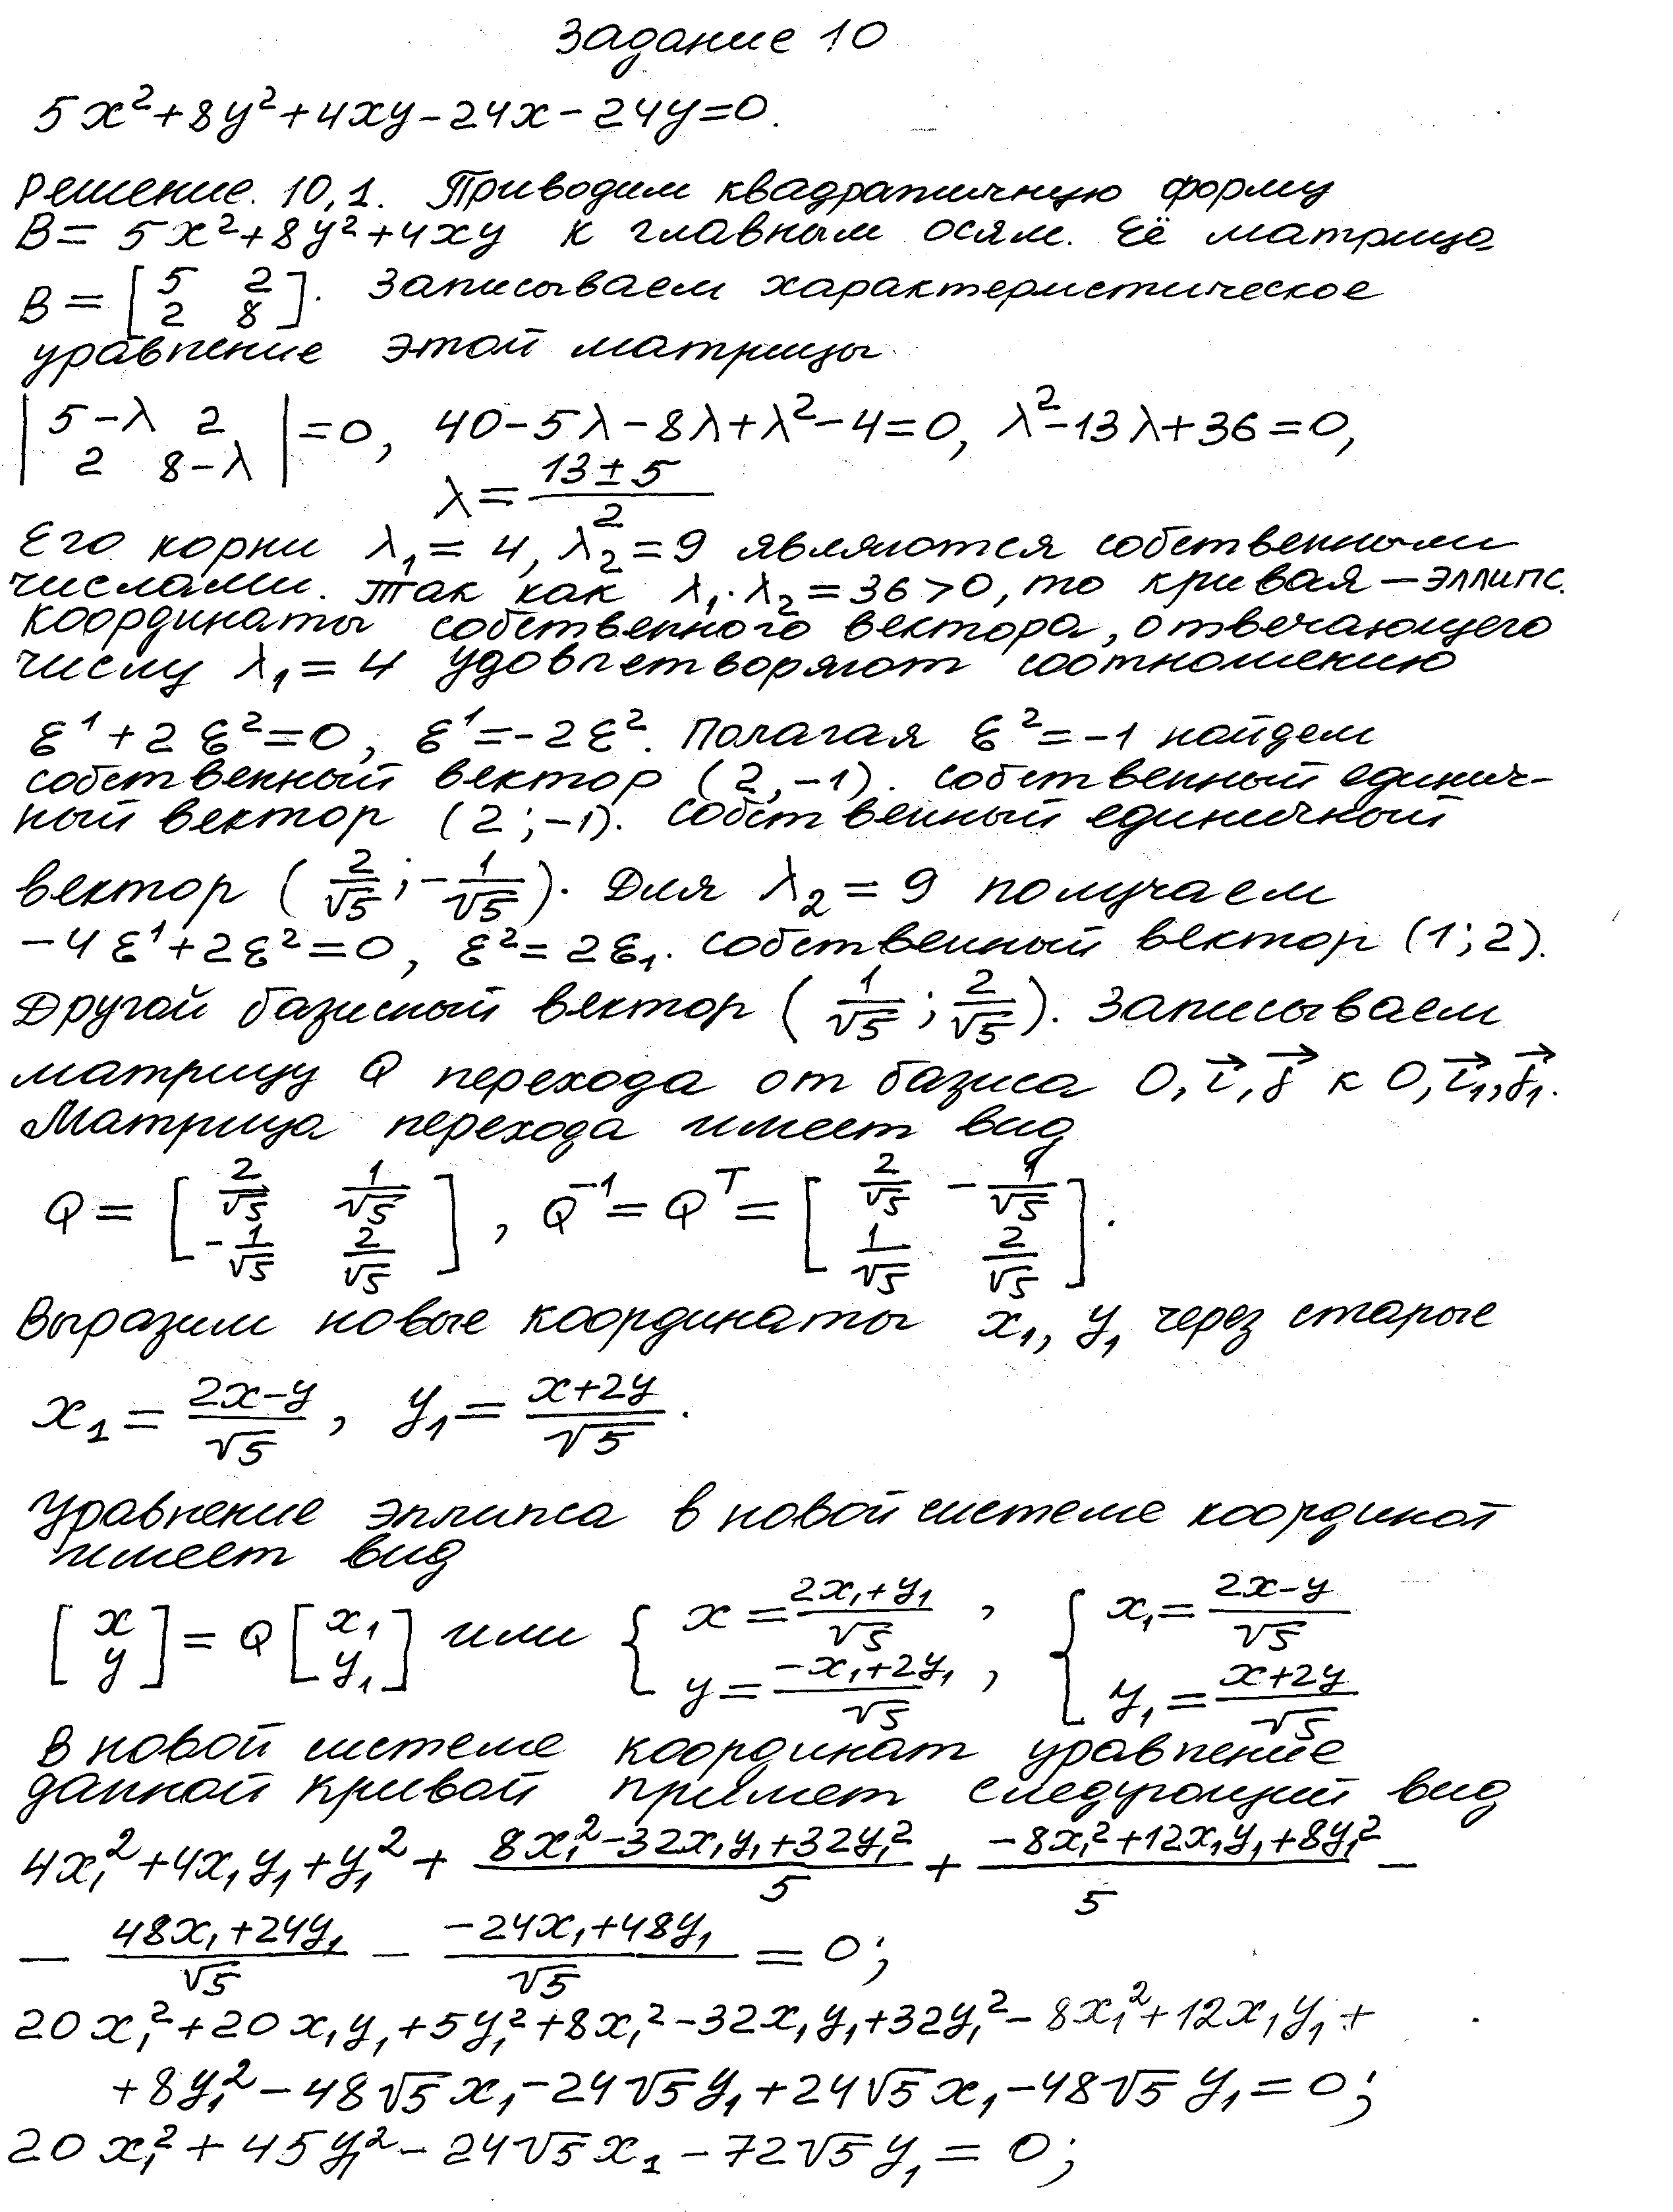 Задание 10
5x²+8y²+4xy-24x-24y=0.
Решение. 10,1. Приводим квадратичную форму
B= 5x²+8y²+4xy к главным осям. Её матрица
B = [5 2; 2 8]. Записываем характеристическое
уравнение этой матрицы
|5-λ 2; 2 8-λ| =0, 40-5λ-8λ+λ²-4=0, λ²-13λ+36=0,
λ = (13±5)/2
Его корни λ₁= 4, λ₂=9 являются собственными
числами. Так как λ₁·λ₂=36>0, то кривая – эллипс.
Координаты собственного вектора, отвечающего
числу λ₁=4 удовлетворяют соотношению
ξ¹+2ξ²=0, ξ¹=-2ξ². Полагая ξ²=-1 найдем
собственный вектор (2,-1). Собственный единич-
ный вектор (2;-1). Собственный единичный
вектор (2/√5; -1/√5). Для λ₂=9 получаем
-4ξ¹+2ξ²=0, ξ²=2ξ₁. Собственный вектор (1;2).
Другой базисный вектор (1/√5; 2/√5). Записываем
матрицу Q перехода от базиса 0, i⃗, j⃗ к 0, i⃗₁, j⃗₁.
Матрица перехода имеет вид
Q = [2/√5 1/√5; -1/√5 2/√5], Q⁻¹=Qᵀ= [2/√5 -1/√5; 1/√5 2/√5].
Выразим новые координаты x₁, y₁ через старые
x₁ = (2x-y)/√5, y₁ = (x+2y)/√5.
Уравнение эллипса в новой системе координат
имеет вид
[x; y] = Q [x₁; y₁] или { x = (2x₁+y₁)/√5, y = (-x₁+2y₁)/√5, { x₁ = (2x-y)/√5 y₁ = (x+2y)/√5
В новой системе координат уравнение
данной кривой примет следующий вид
4x₁²+4x₁y₁+y₁²+ (8x₁²-32x₁y₁+32y₁²)/5 + (-8x₁²+12x₁y₁+8y₁²)/5 -
- (48x₁+24y₁)/√5 - (-24x₁+48y₁)/√5 = 0;
20x₁²+20x₁y₁+5y₁²+8x₁²-32x₁y₁+32y₁²-8x₁²+12x₁y₁+
+8y₁²-48√5x₁-24√5y₁+24√5x₁-48√5y₁=0;
20x₁²+45y₁²-24√5x₁-72√5y₁=0;